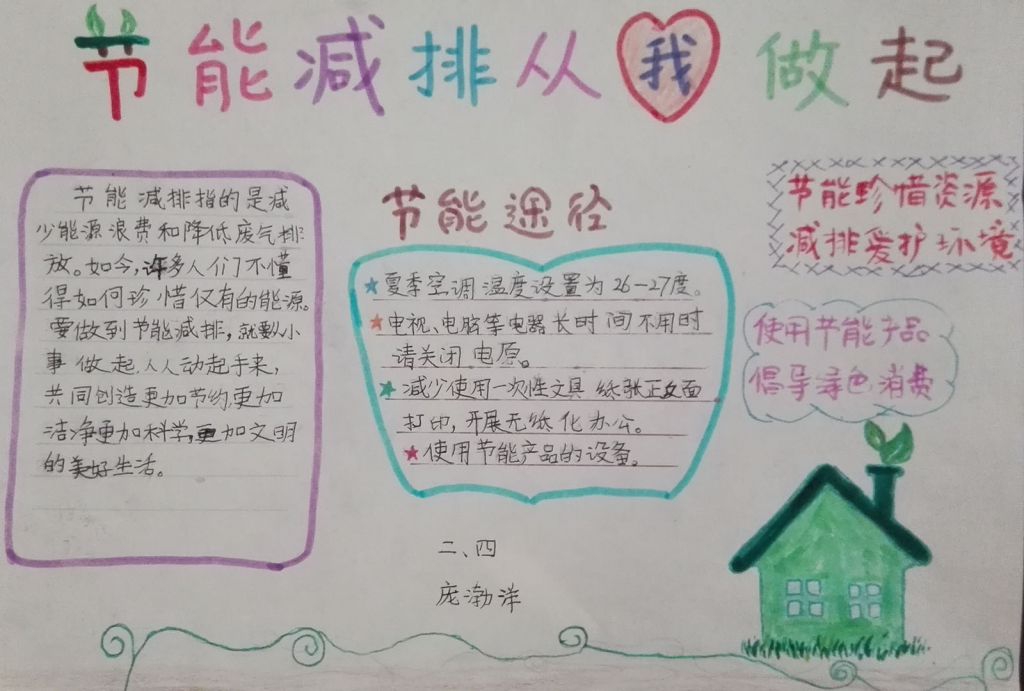 节能减排从我做起
节能减排指的是减
少能源浪费和降低废气排
放。如今,许多人们不懂
得如何珍惜仅有的能源。
要做到节能减排,就要从小
事做起,人人动起手来,
共同创造更加节约,更加
洁净更加科学,更加文明
的美好生活。
节能途径
夏季空调温度设置为26-27度。
电视、电脑等电器长时间不用时
请关闭电原。
减少使用一次性文具纸张正反面
打印,开展无纸化办公。
使用节能产品的设备。
节能珍惜资源
减排爱护环境
使用节能产品
倡导绿色消费
二、四
庞渤洋